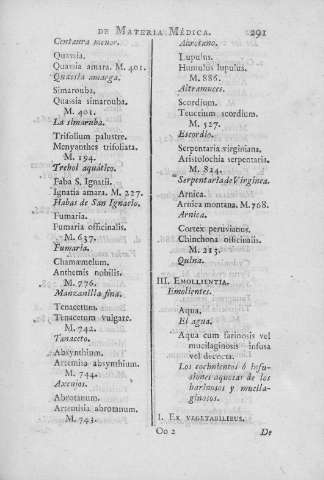 DE MATERIA MÉDICA. 291
Centaura menor.
Quassia.
Quassia amara. M. 401.
Quassia amarga.
Simarouba.
Quassia simarouba.
M. 401.
La simaruba.
Trifolium palustre.
Menyanthes trifoliata.
M. 194.
Trebol aquático.
Faba S. Ignatii.
Ignatia amara. M. 227.
Habas de San Ignacio.
Fumaria.
Fumaria officinalis.
M. 637.
Fumaria.
Chamæmelum.
Anthemis nobilis.
M. 776.
Manzanilla fina.
Tenacetum.
Tenacetum vulgare.
M. 742.
Tanaceto.
Absynthium.
Artemisa absynthium.
M. 744.
Axenjos.
Abrotanum.
Artemisia abrotanum.
M. 743.
Abrotano.
Lupulus.
Humulus lupulus.
M. 886.
Altramuces.
Scordium.
Teucrium scordium.
M. 527.
Escordio.
Serpentaria virginiana.
Aristolochia serpentaria.
M. 824.
Serpentaria de Virginea.
Arnica.
Arnica montana. M. 768.
Arnica.
Cortex peruvianus.
Chinchona officinalis.
M. 213.
Quina.
III. EMOLLIENTIA.
Emolientes.
Aqua.
El agua.
Aqua cum farinosis vel
mucilaginosis infusa
vel decocta.
Los cocimientos ó infu-
siones aquosas de los
harinosos y mucila-
ginosos.
I. EX VEGETABILIBUS.
Oo 2 De